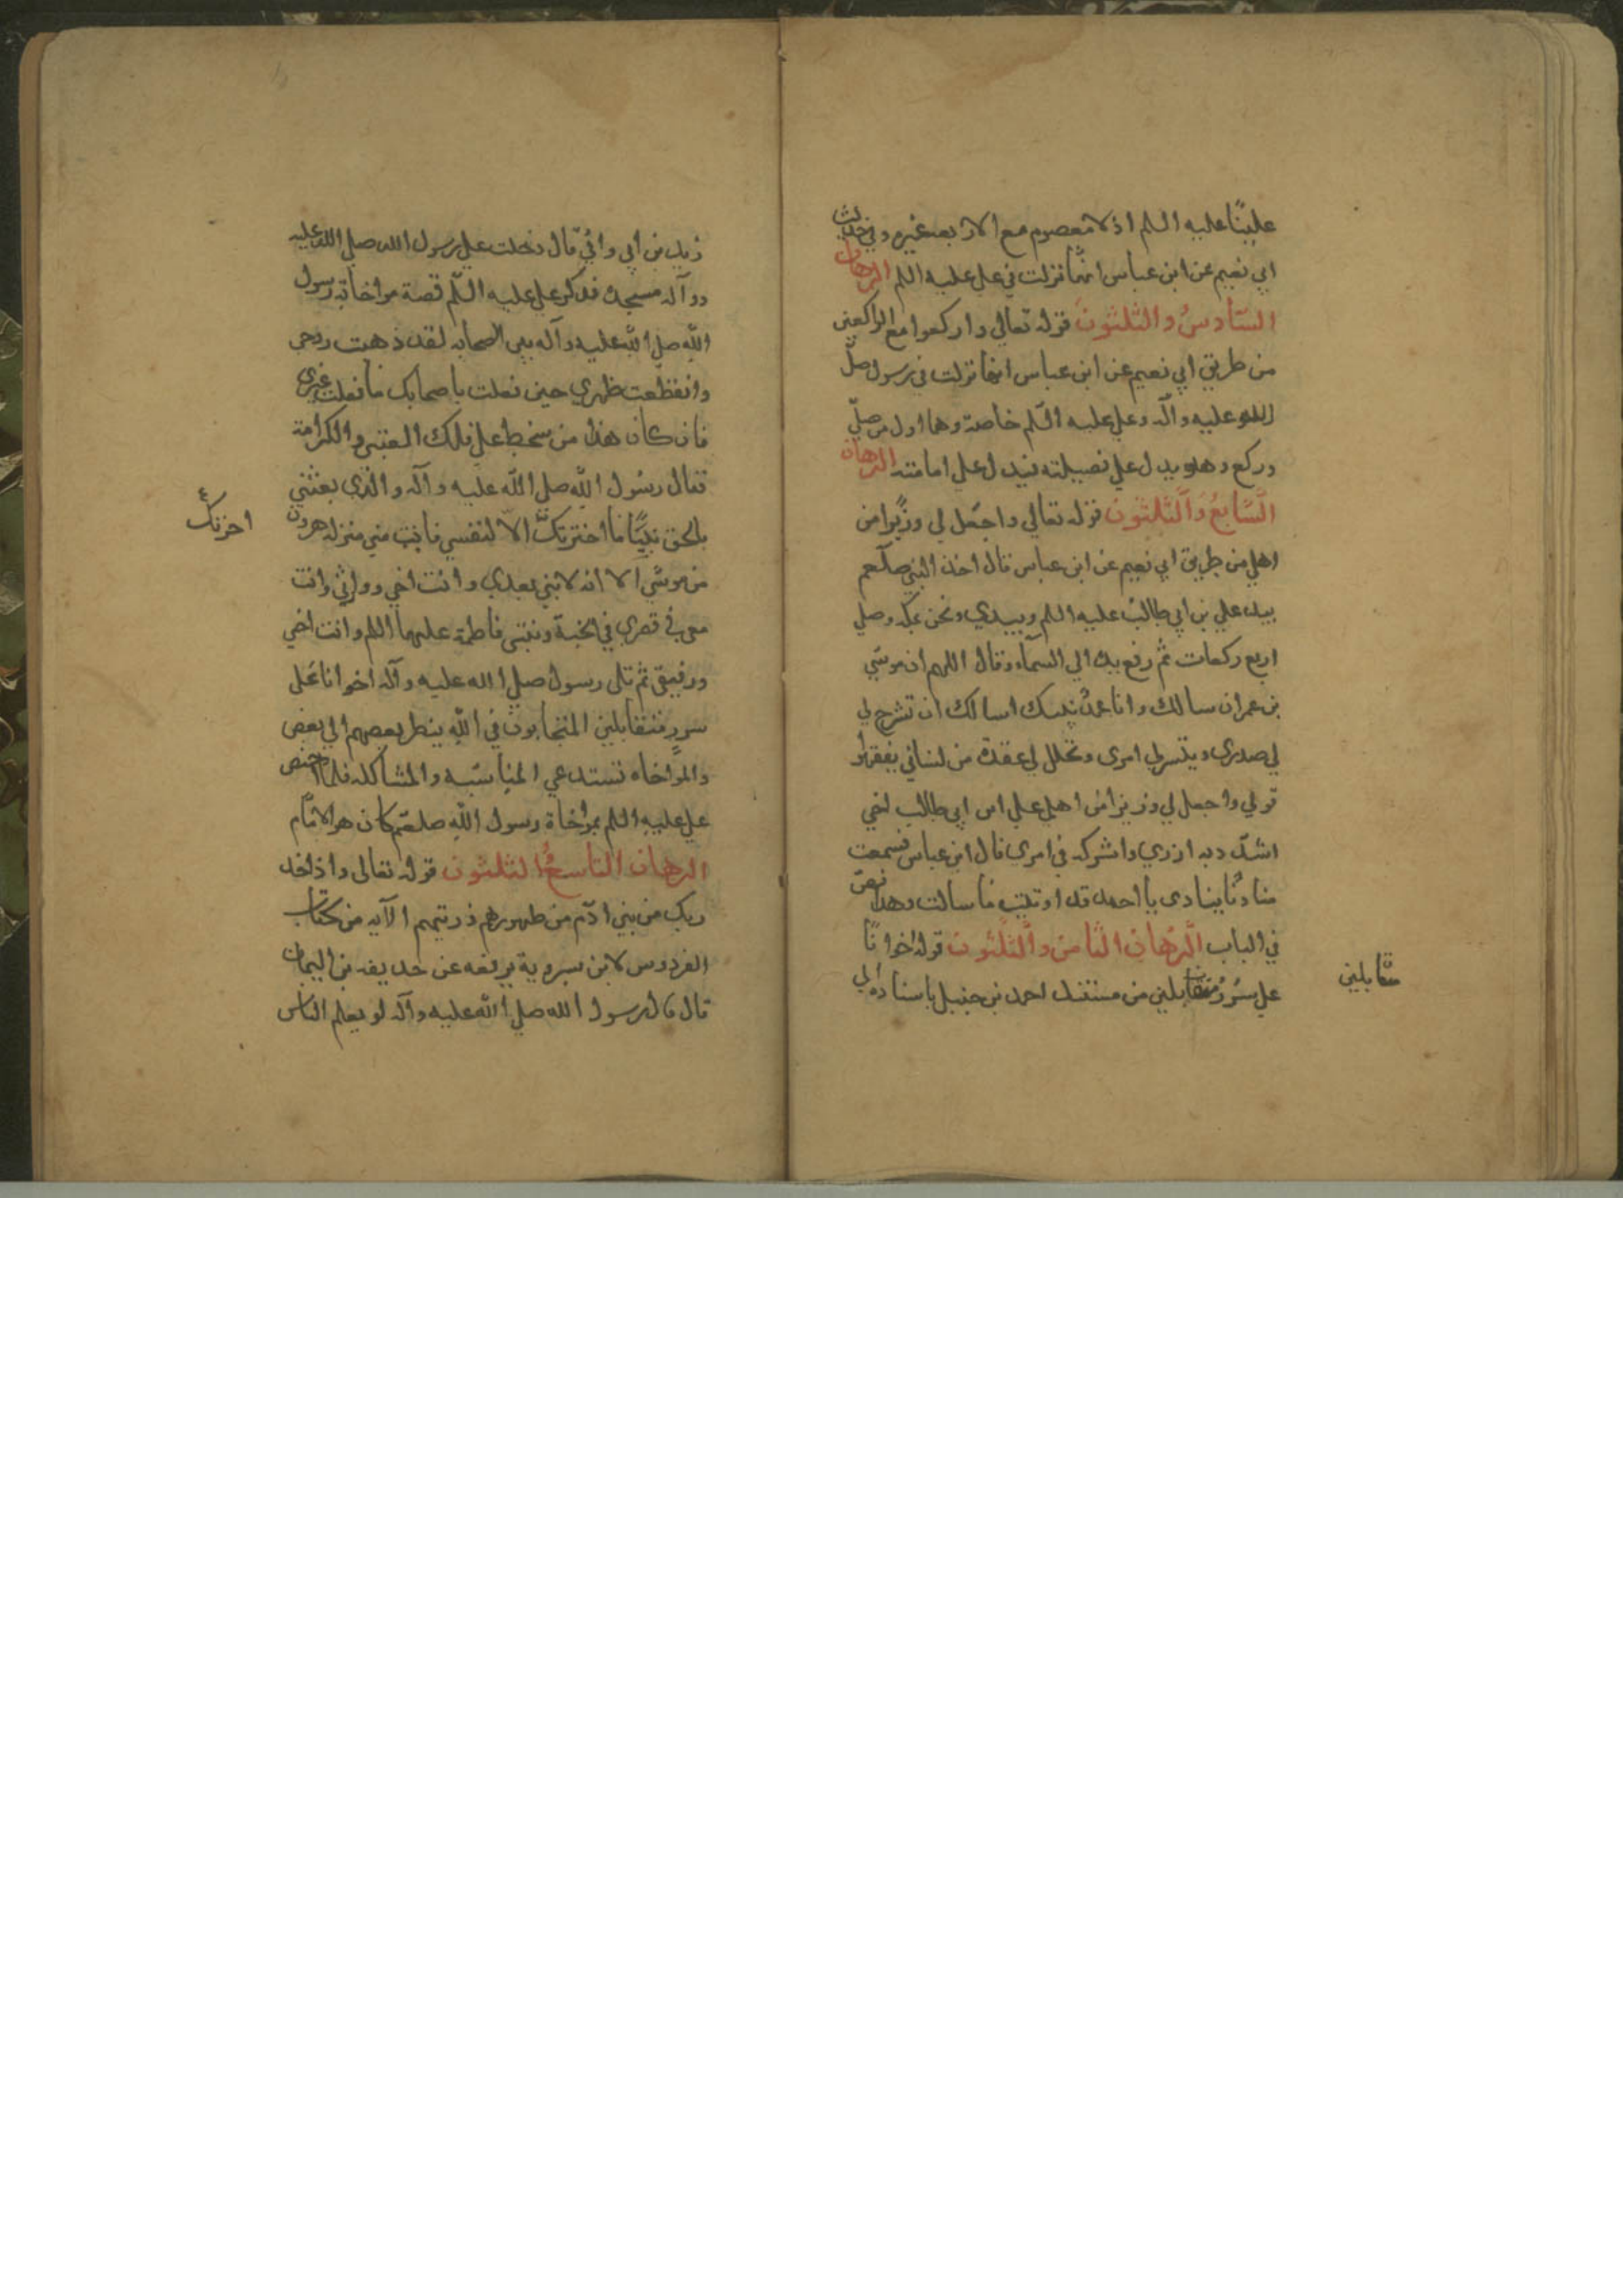 عليًّا عليه السلم اذ لا معصوم مع الاربعه غيره وفي حديث
ابي نعيم عن ابن عباس انها نزلت في علي عليه السلم البرهان
السادسُ والثلثون قوله تعالي واركعوا مع الراكعين
من طريق ابي نعيم عن ابن عباس انها نزلت في رسول صلّ
الله عليه وآله وعلي عليه السّلم خاصة وهما اول من صلّي
وركع وهو يدل علي فضيلته فيدل علي امامته البرهان
السَّابعُ وَالثَّلثون قوله تعالي واجعل لي وزيرًا من
اهلي من طريق ابي نعيم عن ابن عباس قال اخذ النبي صلّعم
بيد علي بن ابي طالب عليه السلم وبيدي ونحن بمكه وصلي
اربع ركعات ثم رفع يده الي السمآء وقال اللهم ان موسي
بن عمران سالك وانا محمدٌ نبيك اسالك ان تشرح لي
لي صدري وتيسرلي امري وتحلل لي عقدة من لساني يفقهوا
قولي واجعل لي وزيرا من اهلي علي ابن ابي طالب اخي
اشدد به ازري واشركه في امري قال ابن عباس فسمعت
مناديًا ينادي يا احمد قد اوتيت ما سالت وهذا نصّ
في الباب البرهان الثامن والثلثون قوله اخوانًا
علي سُرُرٍ متقابلين من مسند احمد بن حنبل باسناده الي
متقابلين
زيد بن ابي وافيٍ قال دخلت علي رسول الله صلي الله عليه
وو آله مسجده فذكر علي عليه السّلم قصة مواخاة رسول
اللّه صلي الله عليه وآله بين الصحابه لقد ذهبت روحي
وانقطعت ظهري حين فعلت باصحابك ما فعلت غيري
فان كان هذا من سخط علي فلك العتبي والكرامة
فقال رسول اللّه صلي اللّه عليه وآله والذي بعثني
بالحق نبيًّا ما اخترتك الّا لنفسي فانت مني منزله هرون
اخرتك
من موسي الا انه لا نبي بعدي وانت اخي ووارثي وانت
معي في قصري في الجنة ومع بنتي فاطمة عليها السلم وانت اخي
ورفيقي ثم تلي رسول صلي الله عليه وآله اخوانا علي
سررٍ متقابلين المتحابون في اللّه ينظر بعضهم الي بعض
والمواخاه تستدعي المناسبه والمشاكله فلما اختص
علي عليه السلم بمواخاة رسول اللّه صلعم كان هو الامام
البرهان التاسعُ الثلثون قوله تعالي واذ اخذ
ربك من بني ادم من ظهورهم ذريتهم الآيه من كتاب
الفردوس لابن سيرويه يرفعه عن حذيفه بن اليمان
قال قال رسول الله صلي الله عليه وآله لو يعلم الناس